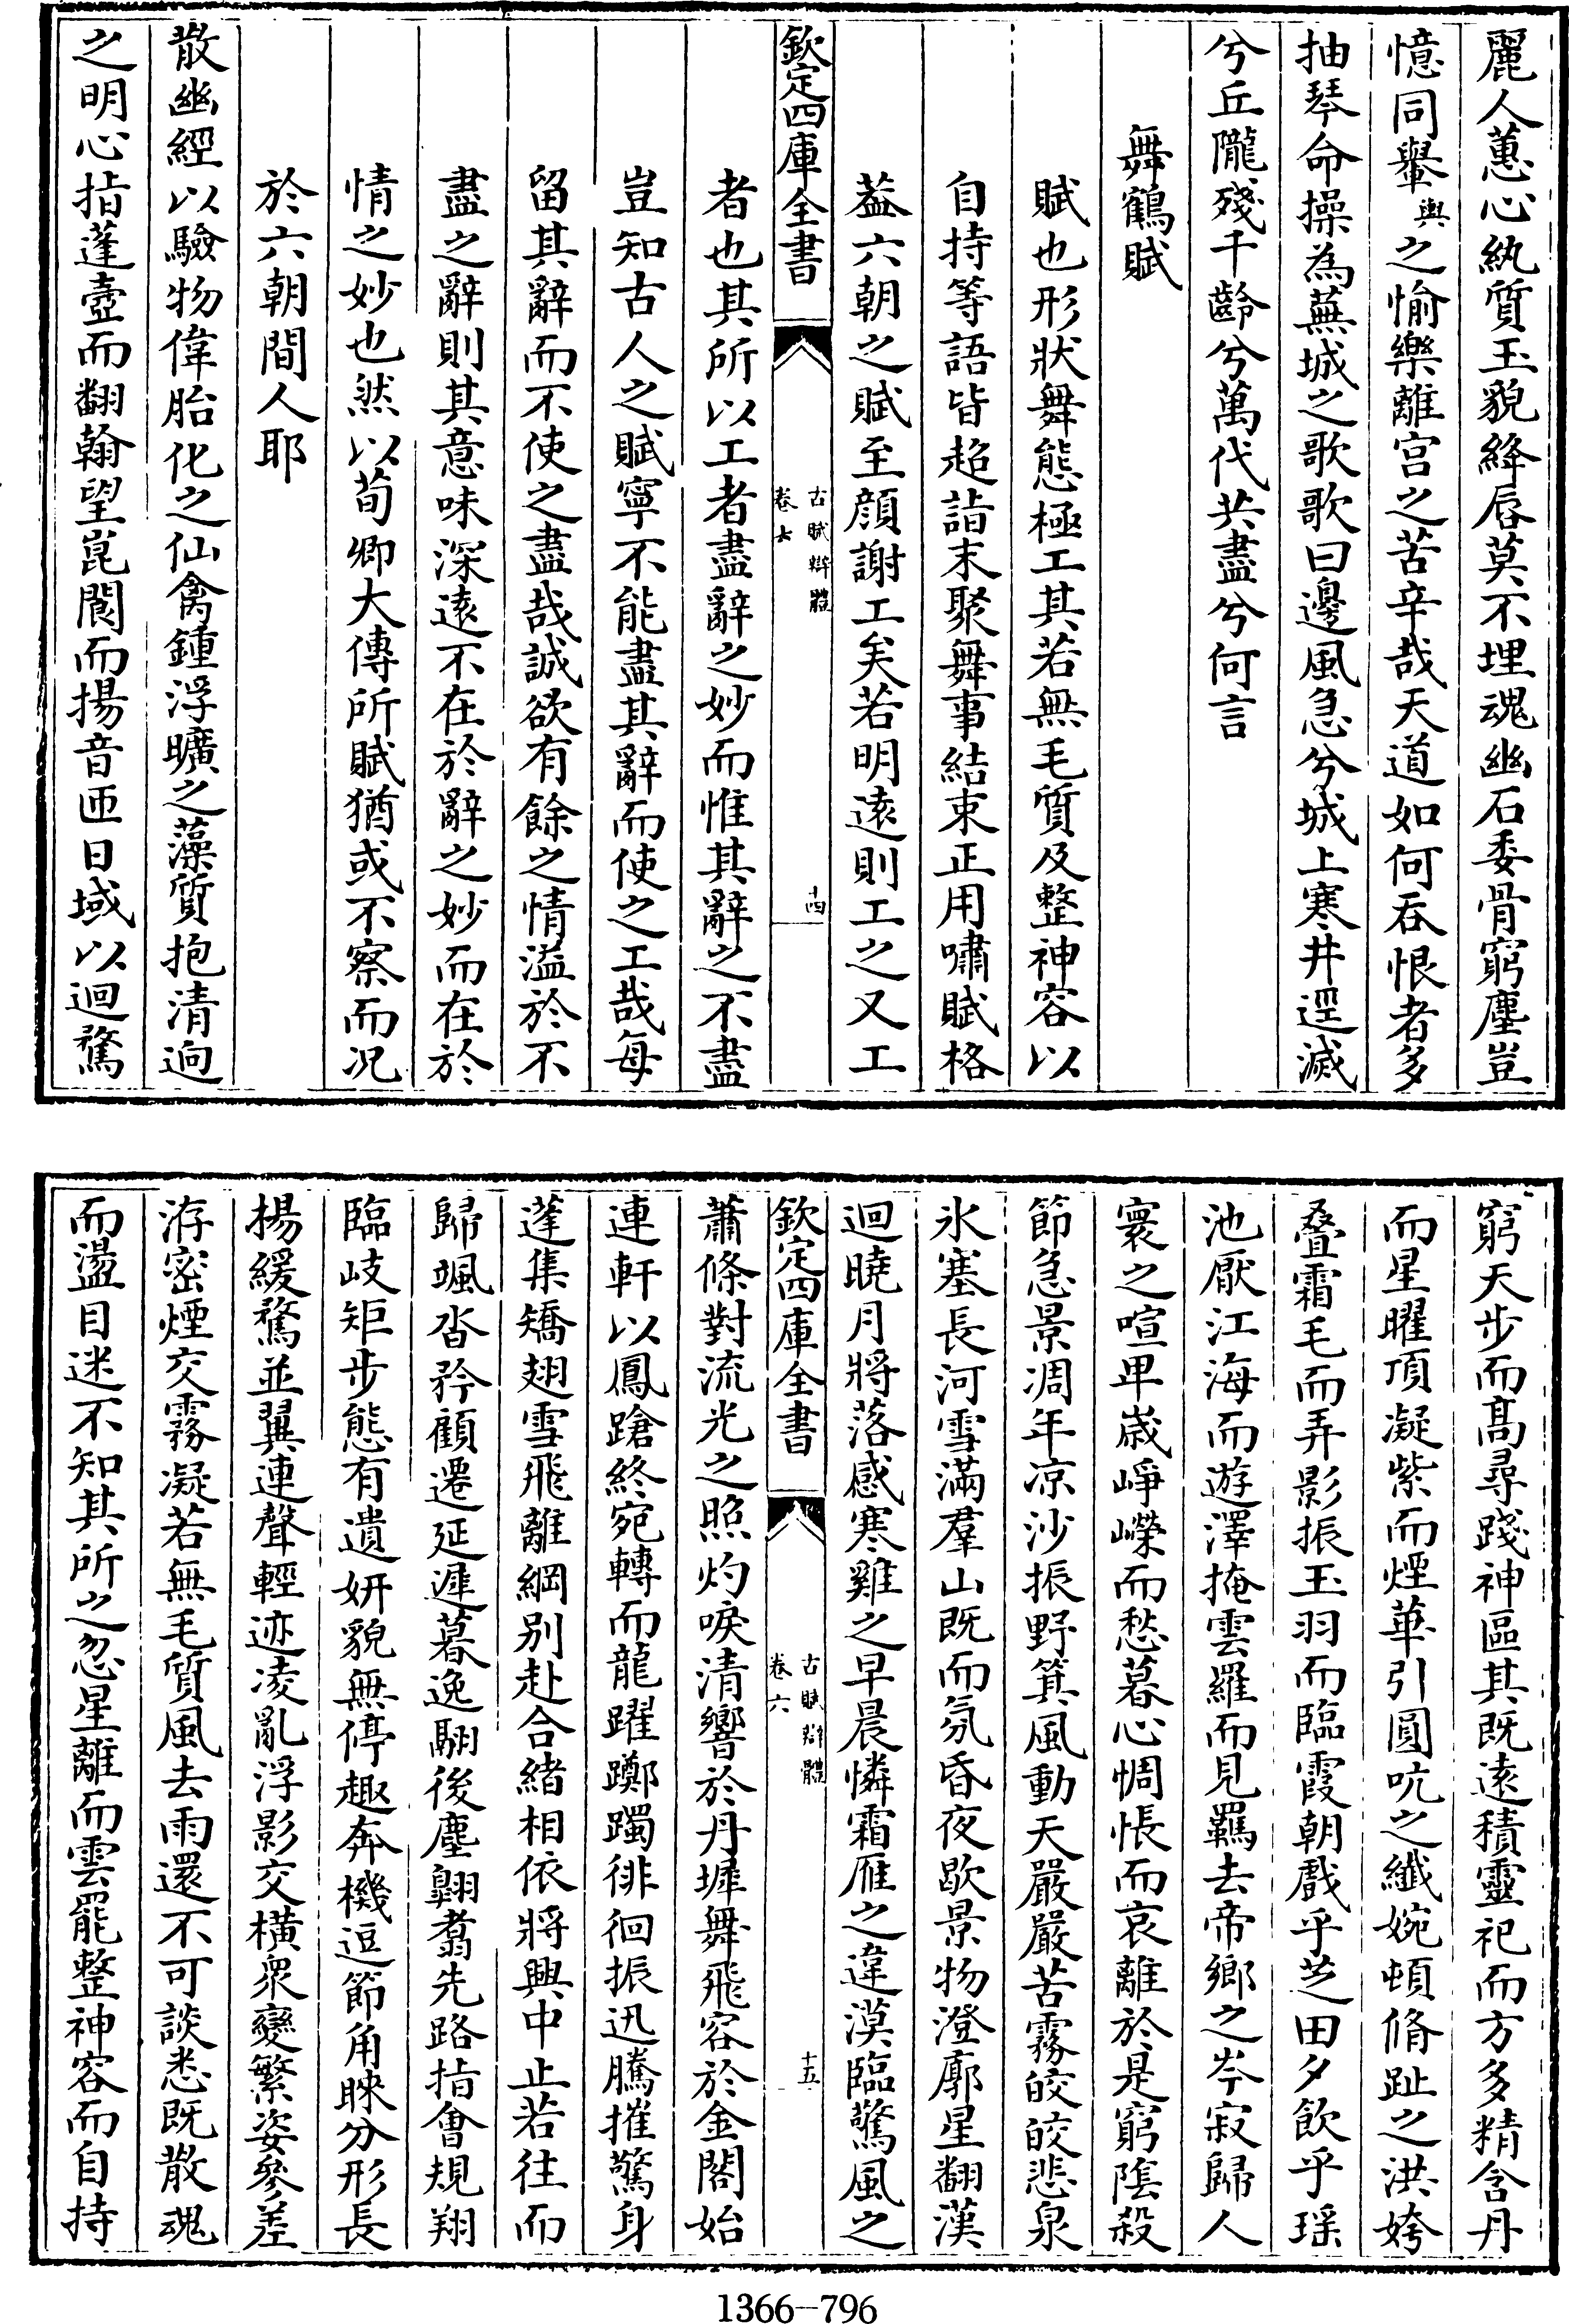 麗人蕙心紈質玉貌絳脣莫不埋魂幽石委骨窮塵豈
憶同轝輿之愉樂離宫之苦辛哉天道如何吞恨者多
抽琴命操為蕪城之歌歌曰邊風急兮城上寒井逕滅
兮丘隴殘千齡兮萬代共盡兮何言
舞鶴賦
賦也形狀舞態極工其若無毛質及整神容以
自持等語皆超詣末聚舞事結束正用嘯賦格
葢六朝之賦至顔謝工矣若明逺則工之又工
欽定四庫全書
古賦辯體
卷六
十四
者也其所以工者盡辭之妙而惟其辭之不盡
豈知古人之賦寧不能盡其辭而使之工哉每
留其辭而不使之盡哉誠欲有餘之情溢於不
盡之辭則其意味深逺不在於辭之妙而在於
情之妙也然以荀卿大傳所賦猶或不察而况
於六朝間人耶
散幽經以驗物偉胎化之仙禽鍾浮曠之藻質抱清迥
之明心指蓬壺而翻翰望崑閬而揚音匝日域以迴鶩
窮天步而髙尋踐神區其既逺積靈祀而方多精含丹
而星曜頂凝紫而煙華引圓吭之纖婉頓脩趾之洪姱
叠霜毛而弄影振玉羽而臨霞朝戲乎芝田夕飲乎瑶
池厭江海而遊澤掩雲羅而見羈去帝鄉之岑寂歸人
寰之喧卑歳崢嶸而愁暮心惆悵而哀離於是窮隂殺
節急景凋年凉沙振野箕風動天嚴嚴苦霧皎皎悲泉
氷塞長河雪滿羣山既而氛昏夜歇景物澄廓星翻漢
迴曉月將落感寒雞之早晨憐霜雁之違漠臨驚風之
欽定四庫全書
古賦辯體
卷六
十五
蕭條對流光之照灼唳清響於丹墀舞飛容於金閣始
連軒以鳳蹌終宛轉而龍躍躑躅徘徊振迅騰摧驚身
蓬集矯翅雪飛離綱别赴合緒相依將興中止若往而
歸颯沓矜顧遷延遲暮逸翮後塵翺翥先路指會規翔
臨岐矩步態有遺妍貌無停趣奔機逗節角睞分形長
揚緩鶩並翼連聲輕迹凌亂浮影交横衆變繁姿參差
洊密煙交霧凝若無毛質風去雨還不可談悉既散魂
而盪目迷不知其所之忽星離而雲罷整神容而自持
1366—796